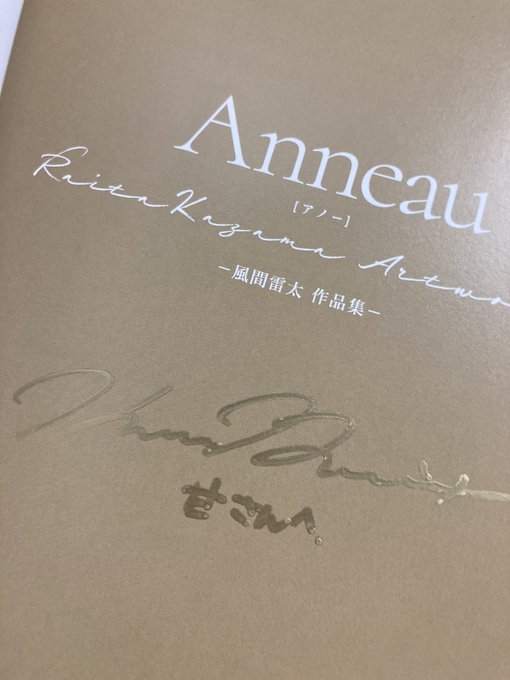 Anneau
[アノー]
Raita Kazama Artwo
−風間雷太 作品集−
甘さんへ